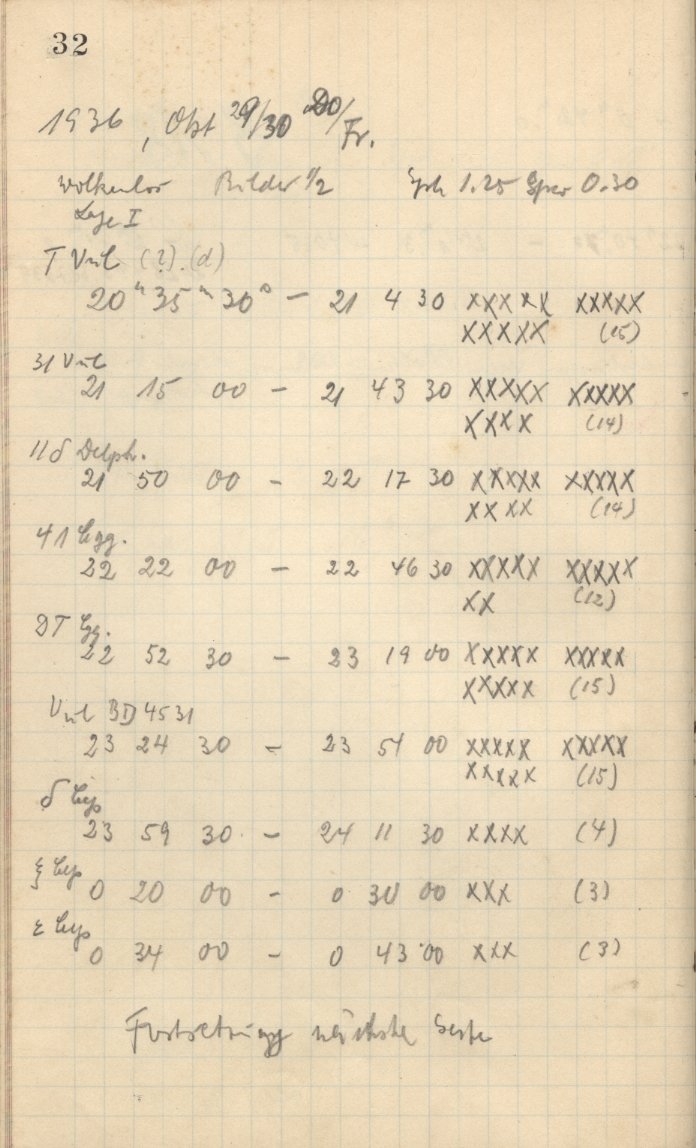 32
1936, Okt 29/30 Do/Fr.
wolkenlos Bilder 1/2 1.25 0.30
Lage I
T Vul (?). (d)
20h 35m 30s — 21 4 30 xxxxx xxxxx
xxxxx (15)
31 Vul
21 15 00 — 21 43 30 xxxxx xxxxx
xxxx (14)
11 δ Delph.
21 50 00 — 22 17 30 xxxxx xxxxx
xxxx (14)
41 Cyg.
22 22 00 — 22 46 30 xxxxx xxxxx
xx (12)
DT Cyg.
22 52 30 — 23 19 00 xxxxx xxxxx
xxxxx (15)
Vul BD 4531
23 24 30 — 23 51 00 xxxxx xxxxx
xxxxx (15)
δ Cep
23 59 30 — 24 11 30 xxxx (4)
ξ Cep
0 20 00 — 0 30 00 xxx (3)
ε Cep
0 34 00 — 0 43 00 xxx (3)
Fortsetzung nächste Seite